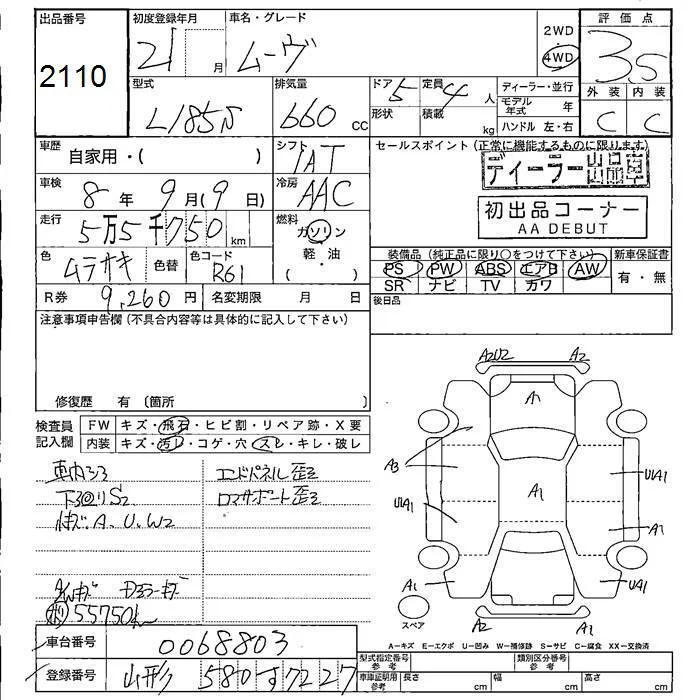 出品番号
2110
初度登録年月
21 月
車名・グレード
ムーヴ
2WD
4WD
評価点
3.5
外装 内装
C C
型式
L185S
排気量
660 CC
ドア 5
形状
定員 4 人
積載 kg
ディーラー・並行
モデル年式 年
ハンドル 左・右
車歴 自家用・( )
シフト IAT
車検 8 年 9 月 (9 日)
冷房 AAC
走行 5万5千750 km
燃料 ガソリン
軽・油
( ・ )
色 ムラサキ 色替
色コード R61
R券 9,260 円 名変期限 月 日
セールスポイント (正常に機能するものに限ります)
ディーラー出品車
初出品コーナー
AA DEBUT
装備品(純正品に限り○をつけて下さい)
PS PW ABS エアB AW
SR ナビ TV カワ
新車保証書
有・無
後日品
注意事項申告欄(不具合内容等は具体的に記入して下さい)
修復歴 有〔箇所 〕
検査員記入欄
FW キズ・飛石・ヒビ割・リペア跡・X要
内装 キズ・汚レ・コゲ・穴・スレ・キレ・破レ
車内ヨゴレ
S2
A、U、W2
エンドパネル歪ミ
コアサポート歪ミ
55750km
A2U2 A2
A1
A3
A1
U1A1
U1A1
A1
A1
U1A1
A2 A1
スペア
A-キズ E-エクボ U-凹み W-補修跡 S-サビ C-腐食 XX-交換済
車台番号 0068803
登録番号 山形 580 す 7227
型式指定番号 参考
類別区分番号 参考
車庫証明用 参考
長さ cm 幅 cm 高さ cm